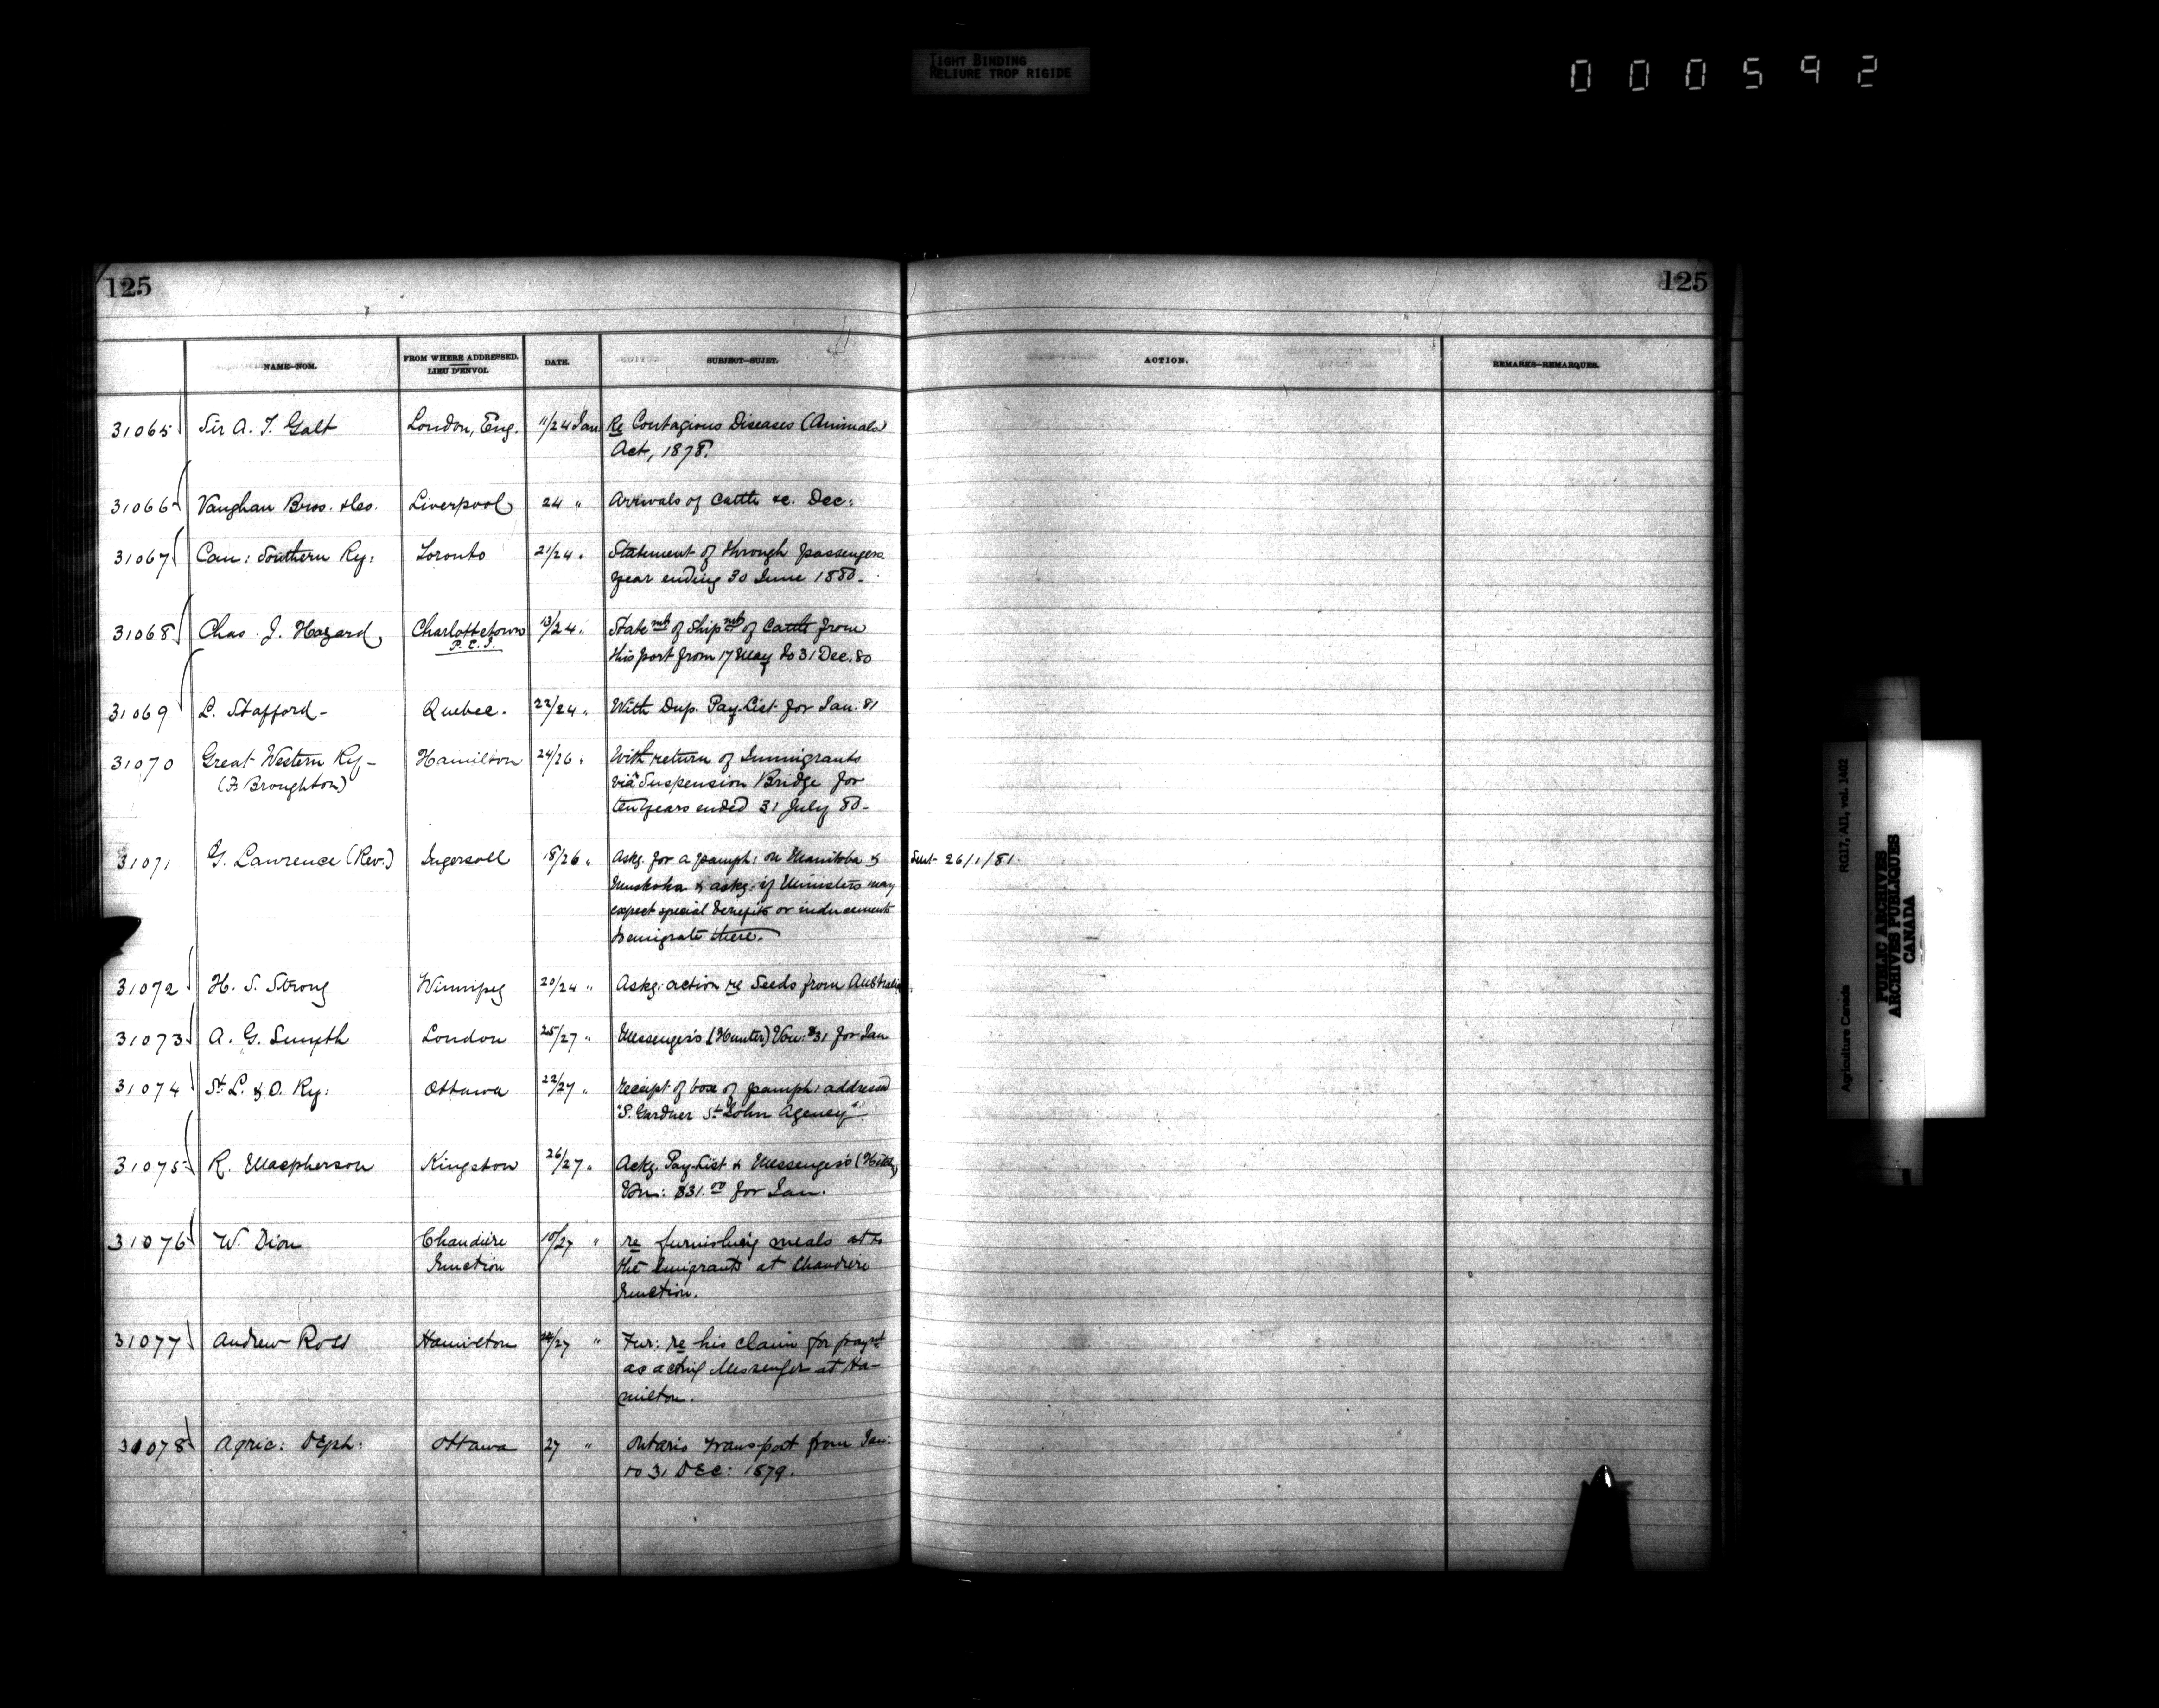 TIGHT BINDING
RELIURE TROP RIGIDE
000592
125
125
NAME—NOM.
FROM WHERE ADDRESSED.
LIEU D'ENVOI.
DATE.
SUBJECT—SUJET.
ACTION.
REMARKS—REMARQUES.
31065 Sir A. T. Galt London, Eng. 11/24 Jan Re Contagious Diseases (Animals)
Act, 1878.
31066 Vaughan Bros. & Co. Liverpool 24 " Arrivals of Cattle &c. Dec:
31067 Can: Southern Ry: Toronto 21/24 " Statement of through passengers
year ending 30 June 1880.
31068 Chas. J. Hazard Charlottetown 13/24 " Statemts of Shipmts of Cattle from
P.E.I. this port from 17 May to 31 Dec. 80
31069 L. Stafford - Quebec. 22/24 " With Dup. Pay-List for Jan. 81
31070 Great Western Ry - Hamilton 24/26 " With return of Immigrants
(F. Broughton) via Suspension Bridge for
ten years ended 31 July 80 -
31071 G. Lawrence (Rev.) Ingersoll 18/26 " Askg. for a pamph: on Manitoba & Sent 26/1/81.
Muskoka & askg. if Ministers may
expect special benefits or inducements
to emigrate there.
31072 H. S. Strong Winnipeg 20/24 " Askg: action re Seeds from Australia.
31073 A. G. Smyth London 25/27 " Messenger's (Hunter) Vou: $31 for Jan
31074 St. L. & O. Ry: Ottawa 22/27 " Receipt of box of pamph: addressed
"S. Gardner St John Agency".
31075 R. Macpherson Kingston 26/27 " Ackg. Pay-List & Messenger's
Vou: $31.00 for Jan.
31076 W. Dion Chaudiere 10/27 " re furnishing meals to
Junction the Emigrants at Chaudiere
Junction.
31077 Andrew Ross Hamilton /27 " Fur: re his claim for paymt
as acting Messenger at Ha-
milton.
31078 Agric: Dept: Ottawa 27 " Ontario transport from Jan:
to 31 Dec: 1879.
Agriculture Canada RG17, AII, vol. 1402
PUBLIC ARCHIVES
ARCHIVES PUBLIQUES
CANADA